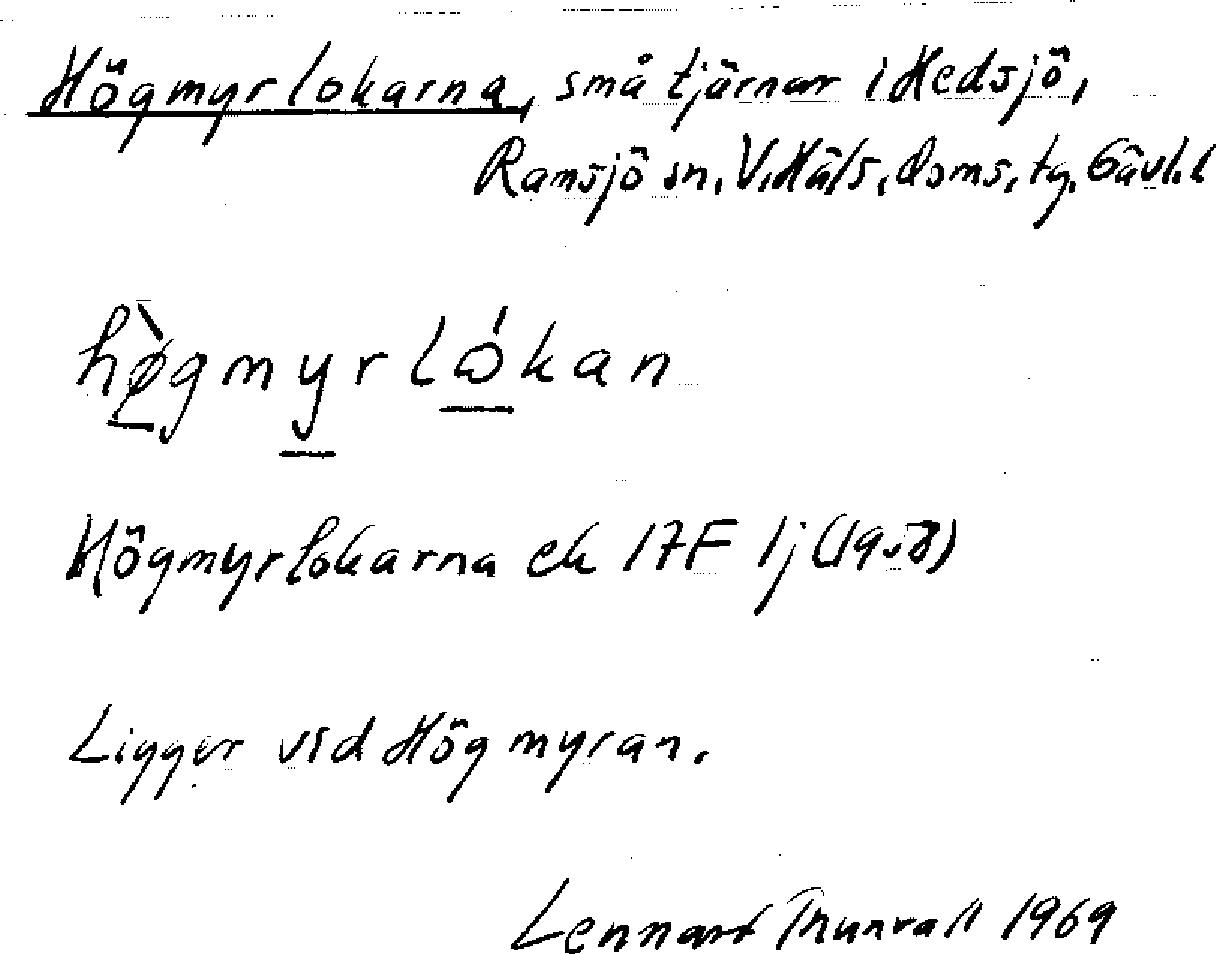 Högmyrlokarna, små tjärnar i Hedsjö,
Ramsjö sn, V. Häls. doms. tg. Gävl. l
hø̀gmyrlòkan
Högmyrlokarna ek 17F 1j (1958)
Ligger vid Högmyran.
Lennart Thunvall 1969